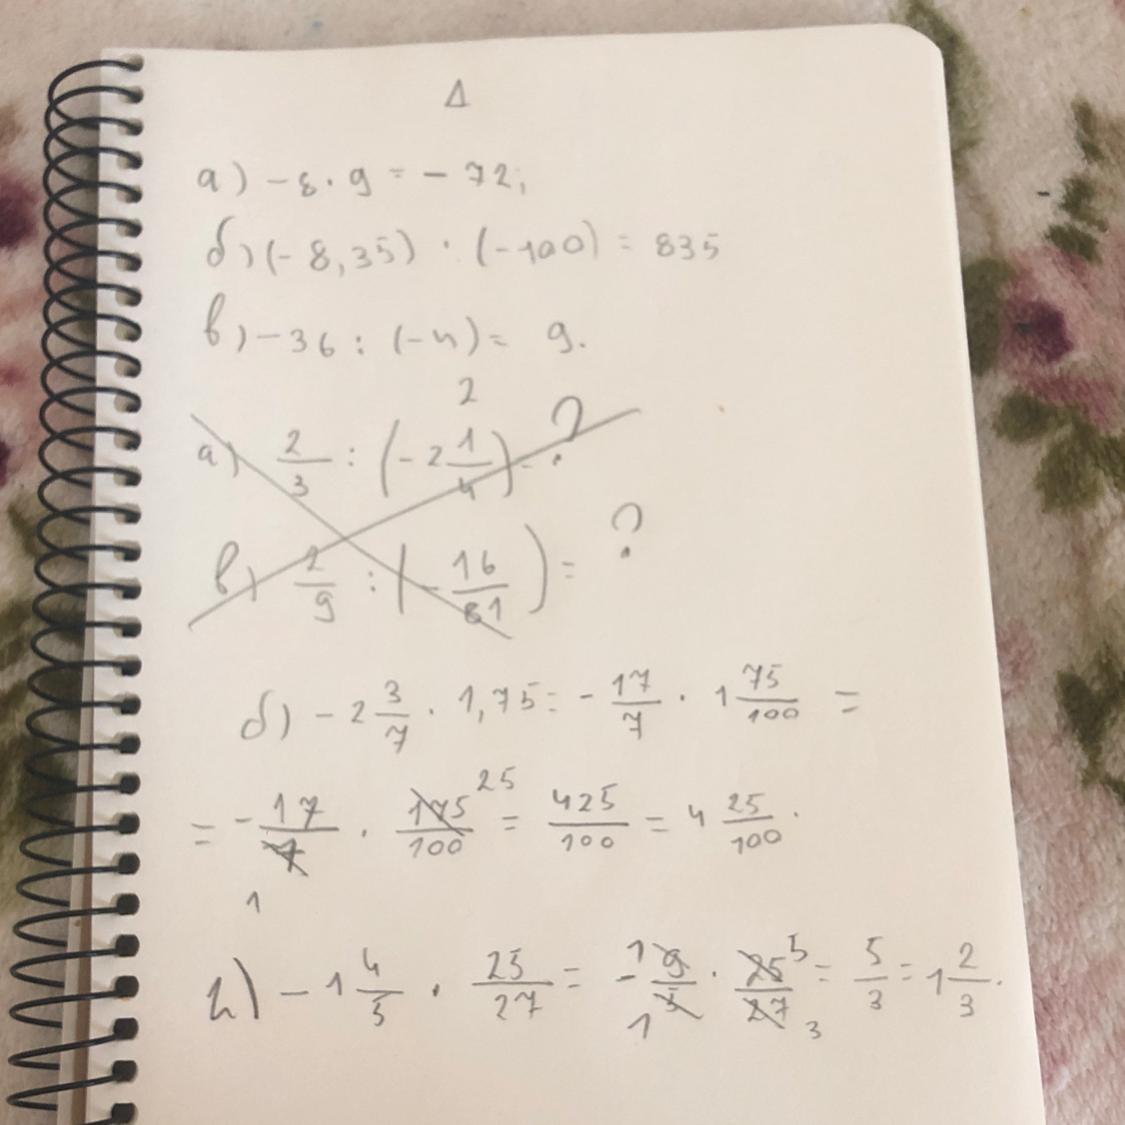 Δ
а) -8 · 9 = - 72;
б) (- 8,35) · (-100) = 835
в) - 36 : (-4) = 9.
2
а) 2/3 : (- 2 1/4) - ?
в) 2/9 : (- 16/81) = ?
б) - 2 3/7 · 1,75 = - 17/7 · 1 75/100 =
= - 17/7 · 175/100 25 = 425/100 = 4 25/100.
1
г) - 1 4/5 · 25/27 = - 1 9/5 1 · 25/27 5 3 = 5/3 = 1 2/3.